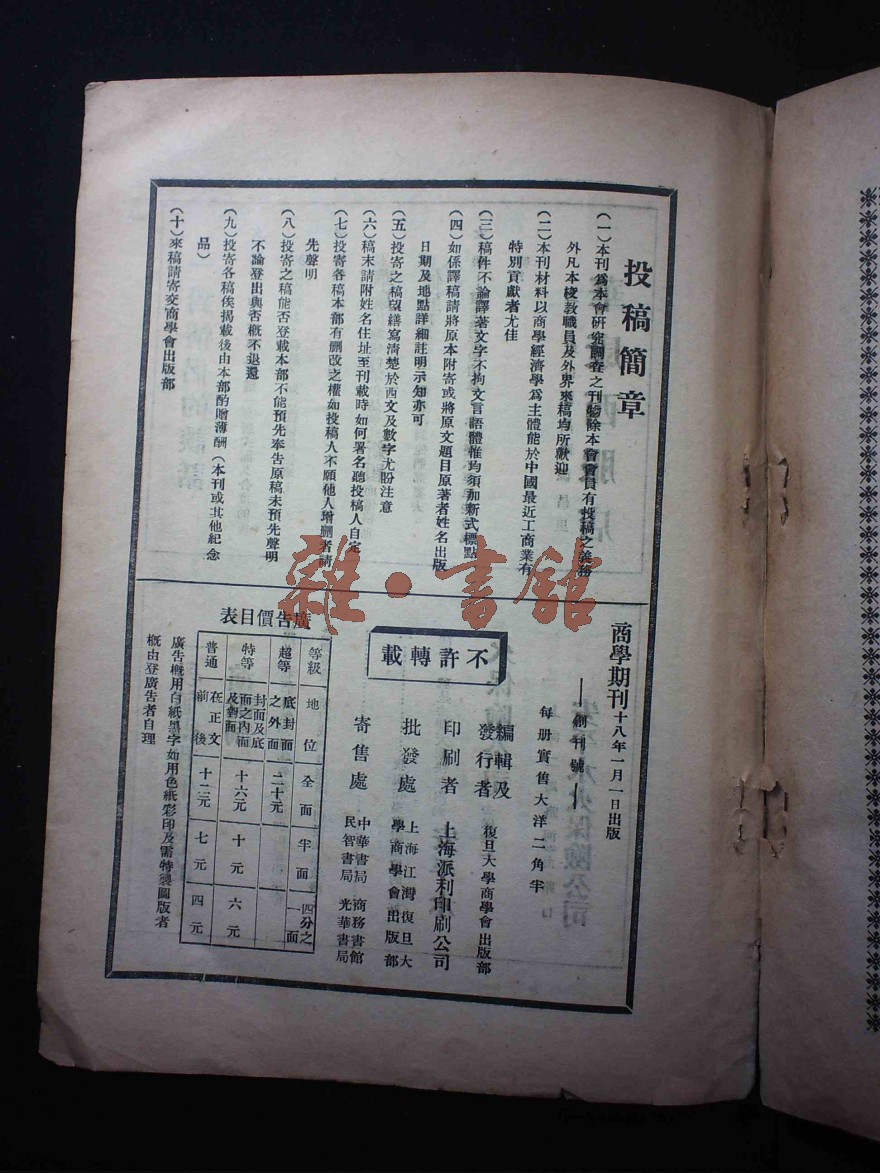 投稿簡章
（一）本刊爲本會研究調查之刊物除本會會員有投稿之義務
外凡本校教職員及外界來稿均所歡迎
（二）本刊材料以商學經濟學爲主體能於中國最近工商業有
特別貢獻者尤佳
（三）稿件不論譯著文字不拘文言語體惟均須加新式標點
（四）如係譯稿請將原本附寄或將原文題目原著者姓名出版
日期及地點詳細註明示知亦可
（五）投寄之稿望繕寫清楚於西文及數字尤盼注意
（六）稿末請附姓名住址至刊載時如何署名聽投稿人自定
（七）投寄各稿本部有删改之權如投稿人不願他人增删者請
先聲明
（八）投寄之稿能否登載本部不能預先奉告原稿未預先聲明
不論登出與否概不退還
（九）投寄各稿俟揭載後由本部酌贈薄酬（本刊或其他紀念
品）
（十）來稿請寄交商學會出版部
商學期刊十八年一月一日出版
——創刊號——
每册實售大洋二角半
編輯及
發行者 復旦大學商學會出版部
印刷者 上海派利印刷公司
批發處 上海江灣復旦大
學商學會出版部
寄售處 中華書局 商務書館
民智書局 光華書局
不許轉載
廣告價目表
等級 地位 全面 半面 四分之一面
超等 底封面之外面 二十元
特等 封面及底面之內面及對面 十六元 十元 六元
普通 在正文前後 十二元 七元 四元
廣告概用白紙黑字如用色紙彩印及需特製圖版者
概由登廣告者自理
雜·書館